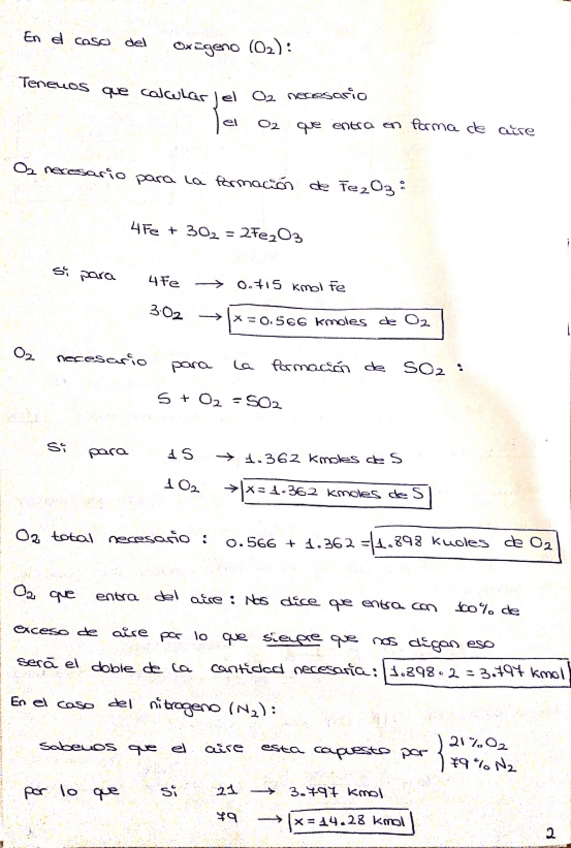 En el caso del oxígeno (O₂):
Tenemos que calcular { el O₂ necesario
el O₂ que entra en forma de aire
O₂ necesario para la formación de Fe₂O₃:
4Fe + 3O₂ = 2Fe₂O₃
Si para 4Fe → 0.715 kmol Fe
3O₂ → x = 0.566 kmoles de O₂
O₂ necesario para la formación de SO₂ :
S + O₂ = SO₂
Si para 1S → 1.362 kmoles de S
1O₂ → x = 1.362 kmoles de S
O₂ total necesario : 0.566 + 1.362 = 1.898 kmoles de O₂
O₂ que entra del aire : Nos dice que entra con 100% de
exceso de aire por lo que siempre que nos digan eso
será el doble de la cantidad necesaria : 1.898 · 2 = 3.797 kmol
En el caso del nitrogeno (N₂) :
Sabemos que el aire esta capuesto por { 21% O₂
79% N₂
por lo que si 21 → 3.797 kmol
79 → x = 14.28 kmol
2